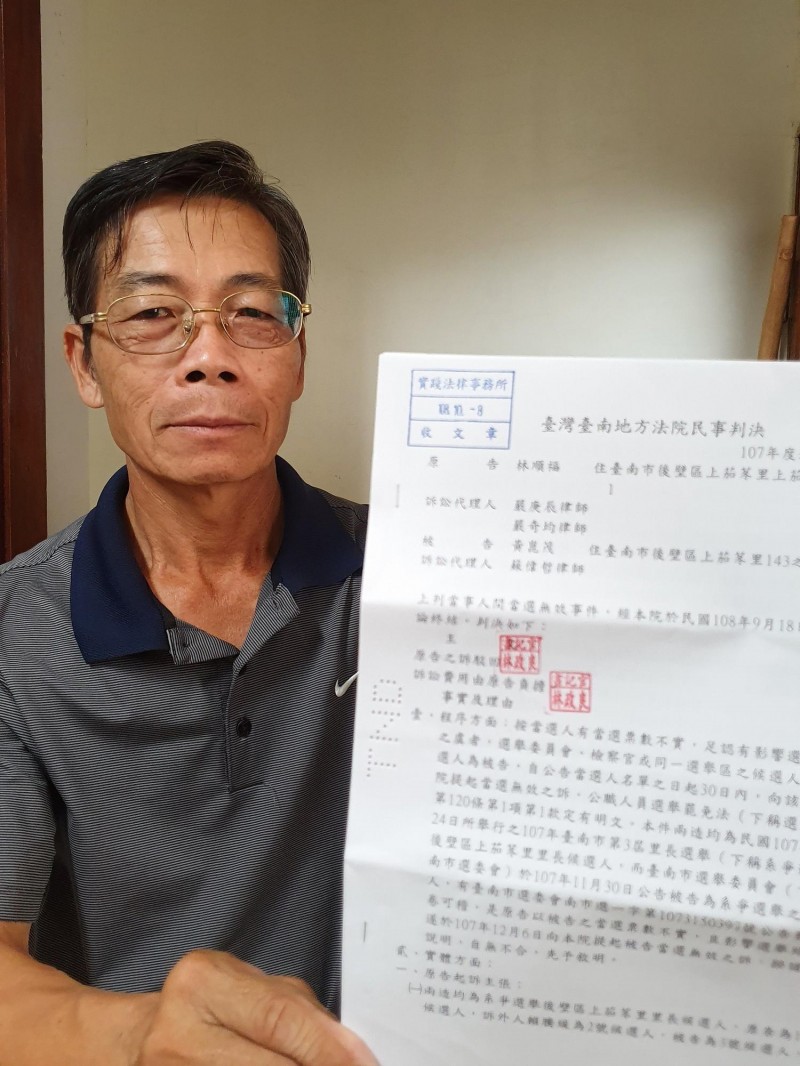 實踐法律事務所
108.10.-8
收文章
臺灣臺南地方法院民事判決
107年度
原告 林順福 住臺南市後壁區上茄苳里上茄
訴訟代理人 嚴庚辰律師
嚴奇均律師
被告 黃崑茂 住臺南市後壁區上茄苳里143之
訴訟代理人 蘇偉哲律師
上列當事人間當選無效事件,經本院於民國108年9月18日
論終結,判決如下:
主
原告之訴駁回
訴訟費用由原告負擔
書記官
林政良
書記官
林政良
事實及理由
壹、程序方面:按當選人有當選票數不實,足認有影響選
之虞者,選舉委員會、檢察官或同一選舉區之候選人
選人為被告,自公告當選人名單之日起30日內,向該
院提起當選無效之訴,公職人員選舉罷免法(下稱選
第120條第1項第1款定有明文。本件兩造均為民國107
24日所舉行之107年臺南市第3屆里長選舉(下稱系爭
後壁區上茄苳里里長候選人,而臺南市選舉委員會(
南市選委會)於107年11月30日公告被告為系爭選舉之
人,有臺南市選委會南市選一字第1073150397號公告
卷可稽,是原告以被告之當選票數不實,且影響選舉
遂於107年12月6日向本院提起被告當選無效之訴,
說明,自無不合,先予敘明。
貳、實體方面:
一、原告起訴主張:
㈠兩造均為系爭選舉後壁區上茄苳里里長候選人,原告為
候選人,訴外人賴騰媛為2號候選人,被告為3號候選人